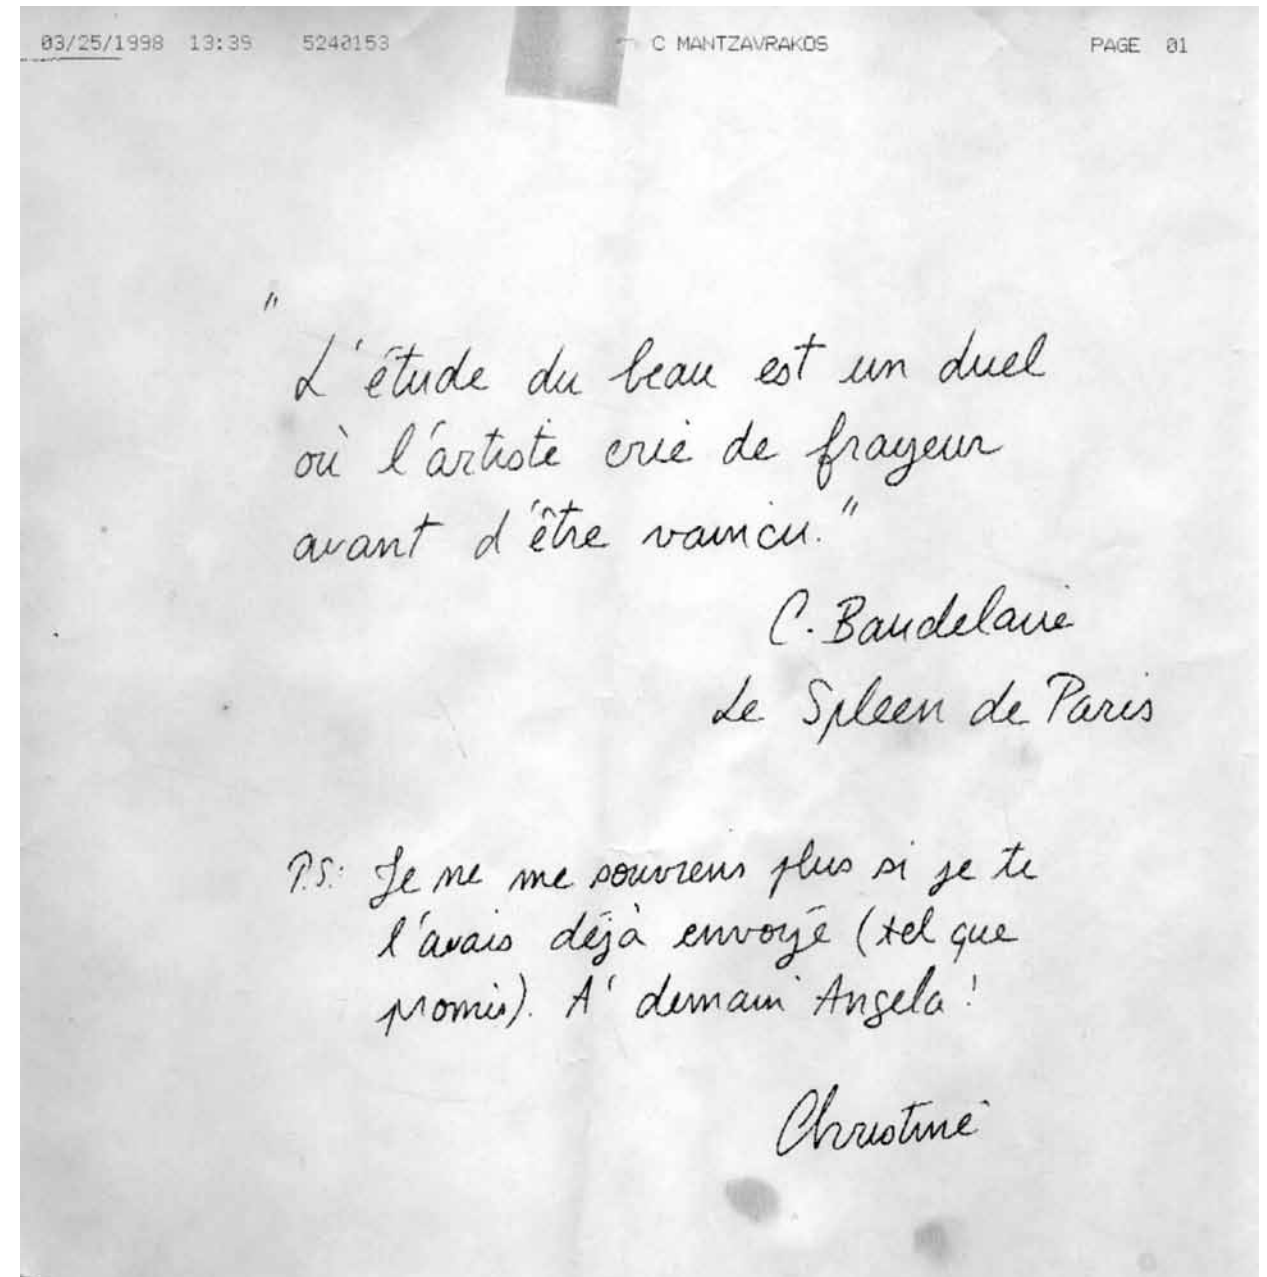 03/25/1998 13:39 5240153 C MANTZAVRAKOS PAGE 01
"
L'étude du beau est un duel
où l'artiste crie de frayeur
avant d'être vaincu."
C. Baudelaire
Le Spleen de Paris
P.S.: Je ne me souviens plus si je te
l'avais déjà envoyé (tel que
promis). À demain Angela!
Christine